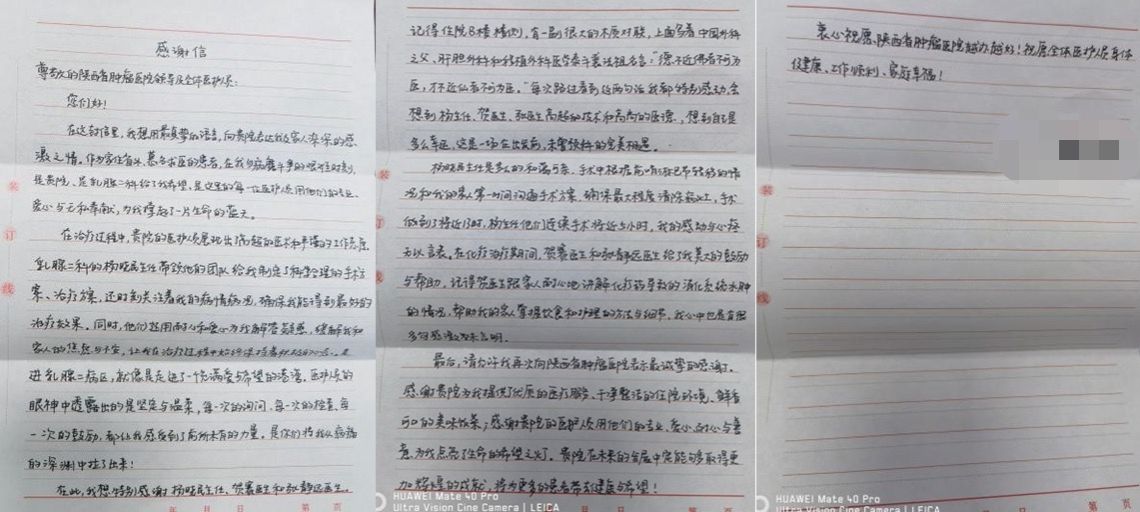 感谢信
尊敬的陕西省肿瘤医院领导及全体医护人员:
您们好!
在这封信里,我想用最真挚的语言,向贵院表达我及家人深深的感
激之情。作为家住省外,慕名求医的患者,在我与病魔斗争的艰难时刻,
是贵院、是乳腺二科给了我希望,是这里的每一位医护人员用他们的专业、
爱心与无私奉献,为我撑起了一片生命的蓝天。
在治疗过程中,贵院的医护人员展现出了高超的医术和严谨的工作态度,
乳腺二科的杨晓民主任带领他的团队给我制定了科学合理的手术方
案、治疗方案,还时刻关注着我的病情病况,确保我能得到最好的
治疗效果。同时,他们还用耐心和爱心为我解答疑惑,缓解我和
家人的焦虑与不安,让我在治疗过程中始终保持着积极的心态。走
进乳腺二病区,就像是走进了一个充满爱与希望的港湾。医护人员的
眼神中透露出的是坚定与温柔,每一次的询问、每一次的检查、每
一次的鼓励,都让我感受到了前所未有的力量。是你们将我从病痛
的深渊中拉了出来!
在此,我想特别感谢杨晓民主任、贺赛医生和张静远医生。
年 月 日 第 页
记得住院B楼楼梯,有一副很大的木质对联,上面写着中国外科
之父、肝胆外科和移植外科医学泰斗裘法祖名言:"德不近佛者不可为
医,才不近仙者不可为医。"每次路过看到这两句话我都特别感动,会
想到杨主任、贺医生、张医生高超的技术和高尚的医德,想到自己是
多么幸运,这是一场在出发前,未曾预料的完美相遇。
杨晓民主任是多么的和蔼可亲,手术中根据前哨淋巴节转移的情
况和我的家人第一时间沟通手术方案,确保最大程度清除病灶,手术
做到了将近13时,杨主任他们连续手术将近5小时,我的感动与心疼
无以言表。在化疗治疗期间,贺赛医生和张静远医生给了我莫大的鼓励
与帮助,记得贺医生跟家人耐心地讲解化疗药导致的消化系统水肿
的情况,帮助我的家人掌握饮食和护理的方法与细节,我心中也是有很
多的感激难以言明。
最后,请允许我再次向陕西省肿瘤医院表示最诚挚的感谢。
感谢贵院为我提供了优质的医疗服务、干净整洁的住院环境、鲜香
可口的美味饭菜;感谢贵院的医护人员用他们的专业、爱心、耐心与善
意,为我点亮了生命的希望之灯。贵院在未来的发展中定能够取得更
加辉煌的成就,将为更多的患者带去健康与希望!
HUAWEI Mate 40 Pro
Ultra Vision Cine Camera | LEICA
年 月 日 第 页
衷心祝愿陕西省肿瘤医院越办越好!祝愿全体医护人员身体
健康、工作顺利、家庭幸福!
HUAWEI Mate 40 Pro
Ultra Vision Cine Camera | LEICA
第 页
装
订
线
装
订
线